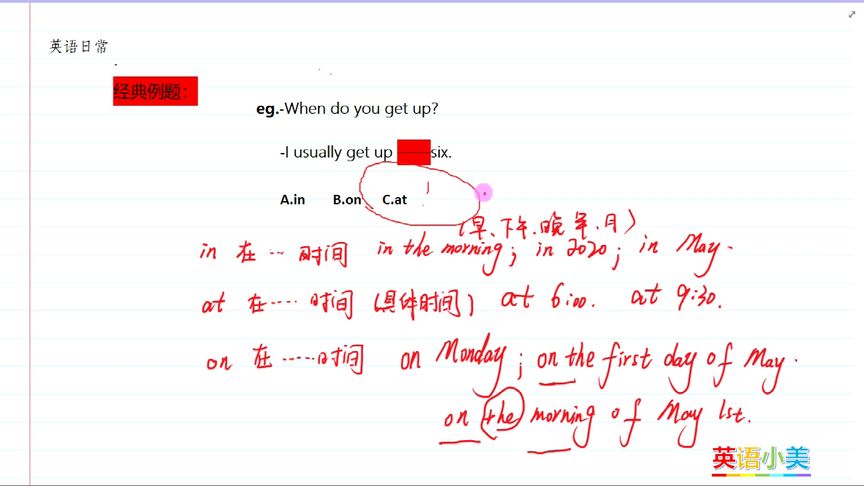 英语日常
经典例题：
eg.-When do you get up?
-I usually get up ——six.
A.in B.on C.at
(早、下午、晚 年、月)
in 在…时间 in the morning; in 2020; in May.
at 在……时间 (具体时间) at 6:00. at 9:30.
on 在……时间 on Monday; on the first day of May.
on the morning of May 1st.
英语小美